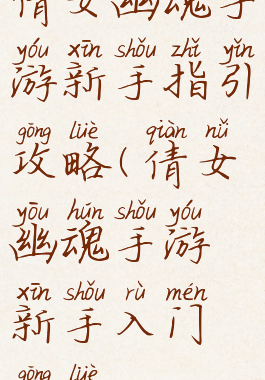 倩女幽魂手
yóu xīn shǒu zhǐ yǐn
游新手指引
gōng lüè qiàn nǚ
攻略(倩女
yōu hún shǒu yóu
幽魂手游
xīn shǒu rù mén
新手入门
gōng lüè